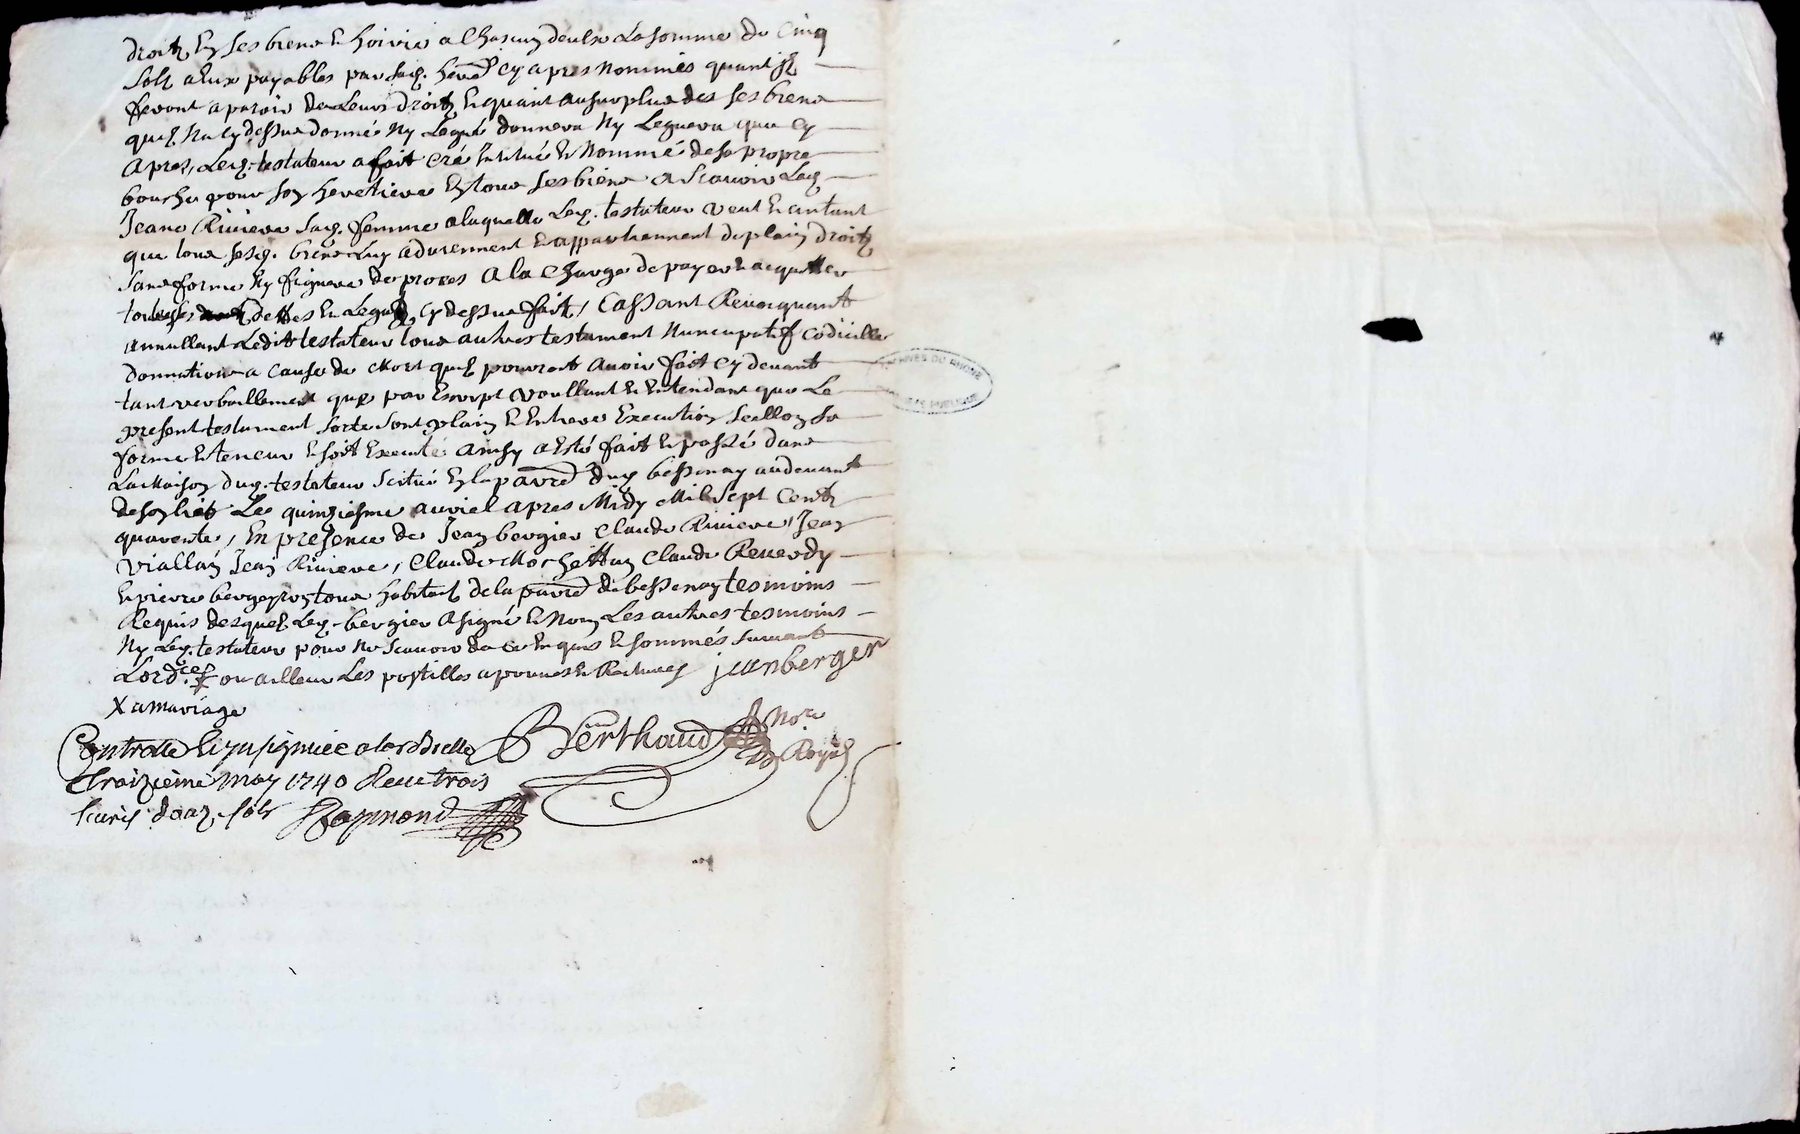 droitz En ses biens & hoirie a Chascun deulx La somme de Cinq
solz a Eux payables par sad. herre. Cy apres nommés quant Jlz
feront aparoir de Leurs droitz & quant au surplus des ses biens
quil Na Cy dessus donné Ny Legué donnera Ny Leguera que Cy
Apres, Led. testateur a fait Cré Jnstitué & Nommé de sa propre
bouche pour son heretiere En tous ses biens a Scauoir Lad.
Jeane Riuiere sad. femme a laquelle Led. testateur veut & entant
que tous sesd. biens Luy aduiennent & appartiennent de plain droitz
sans forme Ny figure de proces a la Charge de payer & acquitter
toutes ses dettes & Leguez Cy dessus fait, Cassant Reuoquant
annullant Ledit testateur tous autres testament Nuncupatif Codicille
donnations a Cause de Mort quil pourroit auoir fait Cy deuant
tant verballement que par Escript voullant & Entendant que Le
present testament sorte sont plain & Entiere Execution Sellon sa
forme & teneur & soit Executé ainsy a Esté fait & passé dans
La Maison dud. testateur Scitué En la parre. dud. bessenay au deuant
de son lict Le quinziesme auril apres Midy Mil sept Centz
quarente, En presence de Jean bergier Claude Riuiere, Jean
Viallay Jean Riuiere, Claude Claude Reuerdy
& pierre tous habitant de la parre. de bessenay tesmoins
Requis desquelz Led. bergier a signé & Non Les autres tesmoins
Ny Led. testateur pour Ne Scauoir de ce Enquis & sommés suiuant
Lordce. X ou ailleur Les postilles aprouues & jean berger
X a mariage
Berthaud Nore Royal
Controllé & a Larbresle
Le treizième may 1740 Receu trois
liures douze sols Raymond
ARCHIVES DU RHONE